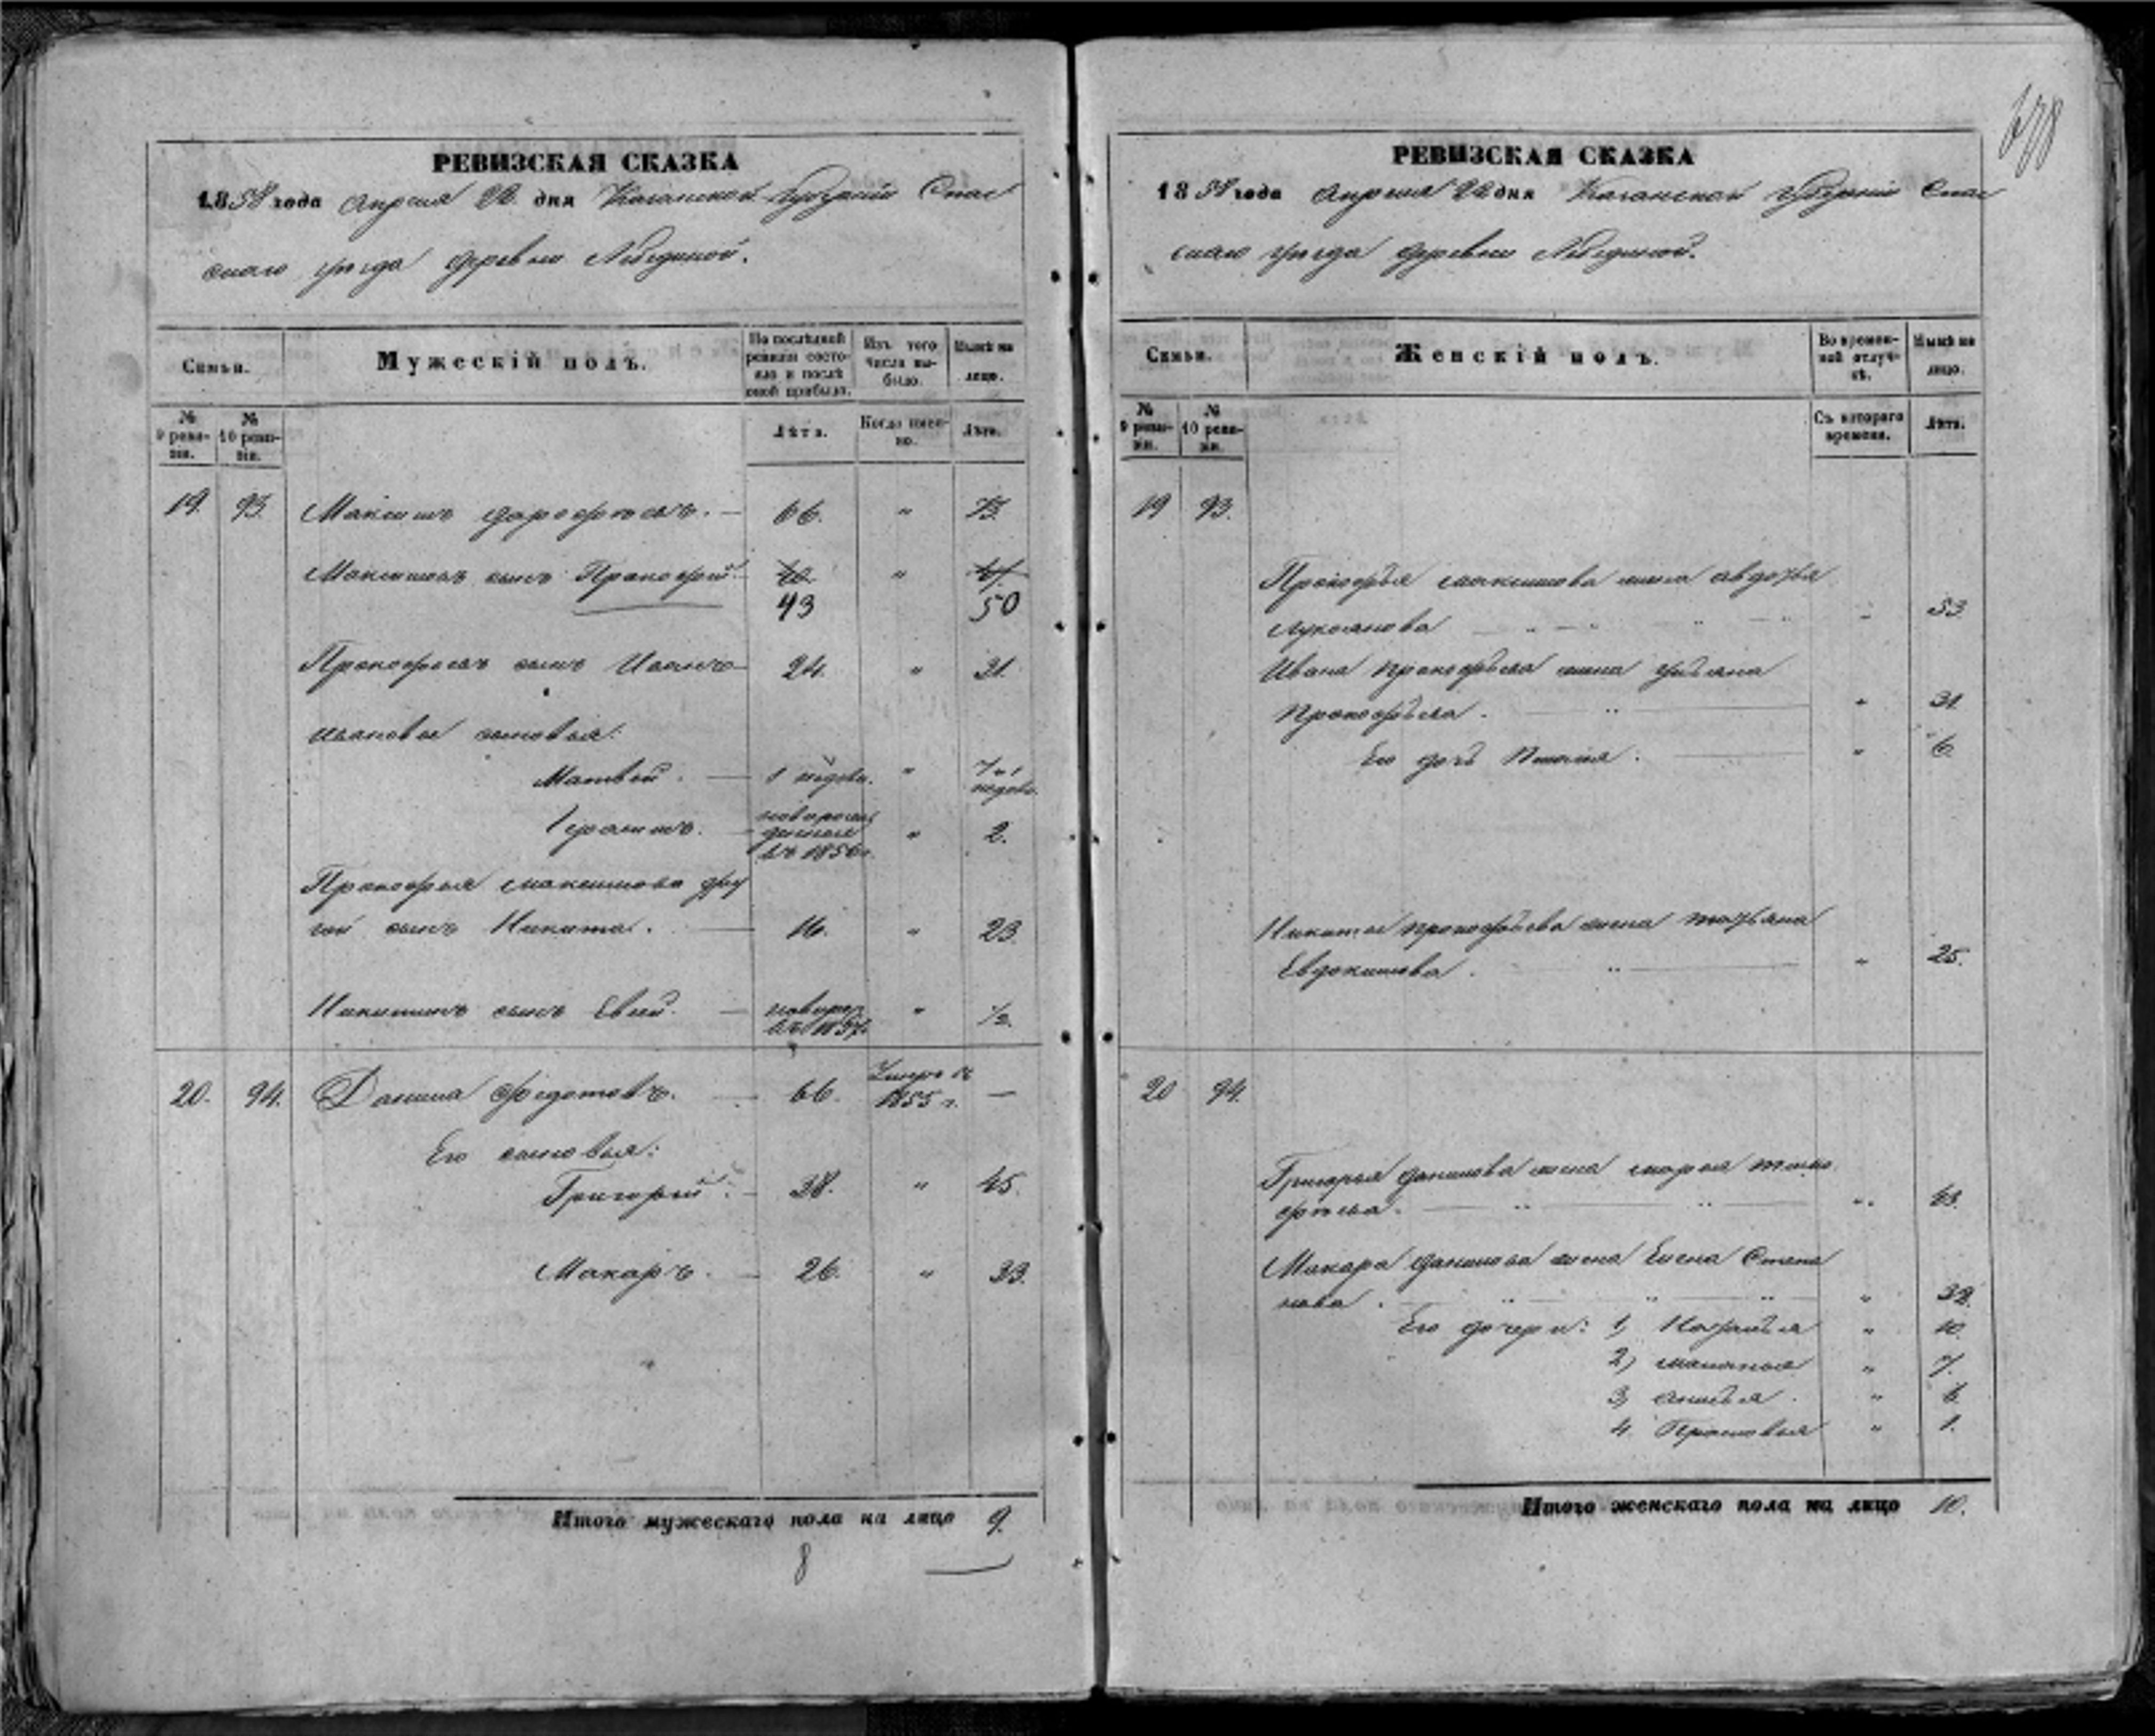 РЕВИЗСКАЯ СКАЗКА
1858 года Апреля 22 дня Казанской Губерніи Спас
скаго уезда деревни Лебединой.
Семьи.
Мужескій полъ.
По послѣдней ревизіи состояло и послѣ оной прибыло.
Изъ того числа выбыло.
Нынѣ на лицо.
№ 9 ревизіи.
№ 10 ревизіи.
Лѣта.
Когда именно.
Лѣта.
19. 93. Максимъ Дорофеевъ. 66. " 73.
Максимовъ сынъ Прокофий "
43 50
Прокофьевъ сынъ Иванъ 24. " 31.
Ивановы сыновья:
Матвей. 1 недели. " 7 и 1
недели.
Герасимъ. новорож
денный
въ 1856 г. " 2.
Прокофья Максимова дру
гой сынъ Никита. 16. " 23.
Никитинъ сынъ новорож
въ 1857 г. " 1/2.
20. 94. Данила Федотовъ. 66. Умеръ въ
1855 г. —
Его сыновья:
Григорий. 38. " 45.
Макаръ. 26. " 33.
Итого мужескаго пола на лицо 9.
8
РЕВИЗСКАЯ СКАЗКА
1858 года Апреля 22 дня Казанской Губерніи Спас
скаго уезда деревни Лебединой.
Семьи.
Женскій полъ.
Во временной отлучкѣ.
Нынѣ на лицо.
№ 9 ревизіи.
№ 10 ревизіи.
Съ котораго времени.
Лѣта.
19 93.
Прокофья Максимова жена Авдотья
Лукоянова 53
Ивана Прокофьева жена Ульяна
Прокофьева. " 31.
Его дочь " 6.
Никиты Прокофьева жена Татьяна
Евдокимова. " 25.
20 94.
Григорья Данилова жена Марья Тимо
фѣева.
Макара Данилова жена Елена Степа
нова. "
Его дочери: 1, Наталья " 10.
2) Маланья " 7.
3, Анисья. "
4. Прасковья " 1.
Итого женскаго пола на лицо 10.